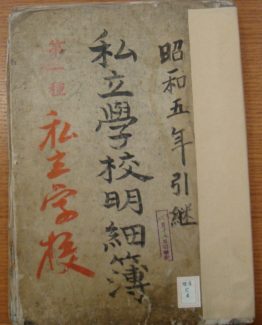 昭和五年引継
私立學校明細簿
第一種
私立学校